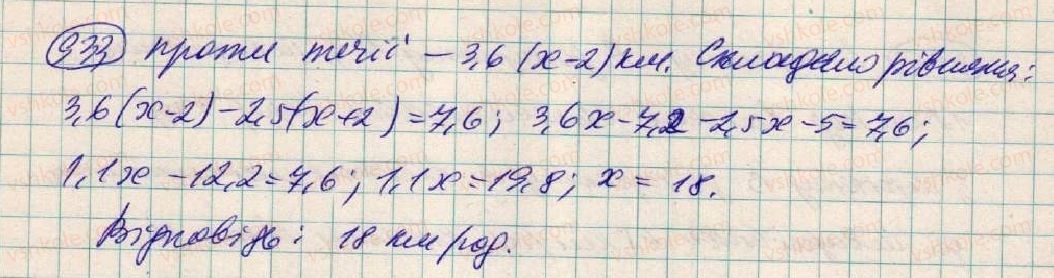 933 проти течії – 3,6 (x-2) км. Складемо рівняння:
3,6(x-2)-2,5(x+2)=7,6; 3,6x-7,2-2,5x-5=7,6;
1,1x-12,2=7,6; 1,1x=19,8; x=18.
Відповідь: 18 км/год.